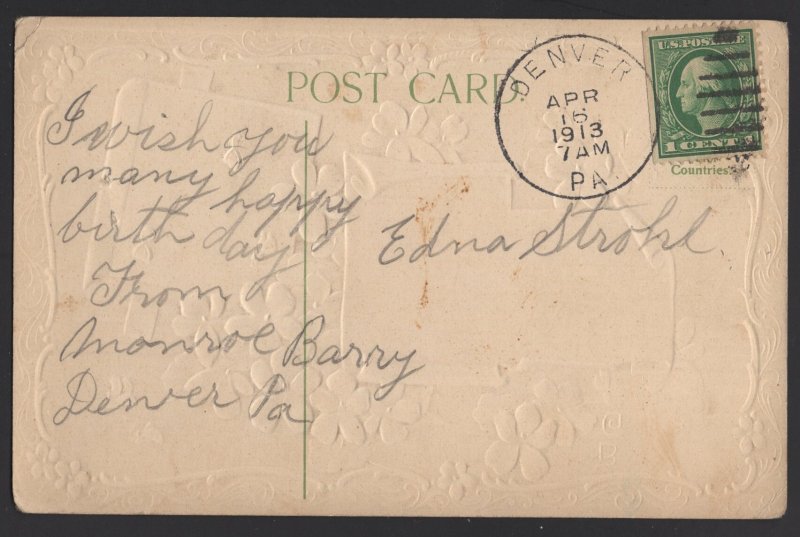 POST CARD
DENVER
APR
16
1913
7AM
PA.
U.S. POSTAGE
1 CENT 1
Countries
I wish you
many happy
birth day
From
Monroe Barry
Denver Pa
Edna Strohl